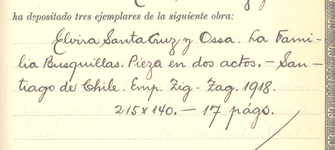 ha depositado tres ejemplares de la siguiente obra:
Elvira Santa Cruz y Ossa. La Fami-
lia Busquillas. Pieza en dos actos. — San-
tiago de Chile. Emp. Zig-Zag. 1918.
215 x 140. — 17 págs.